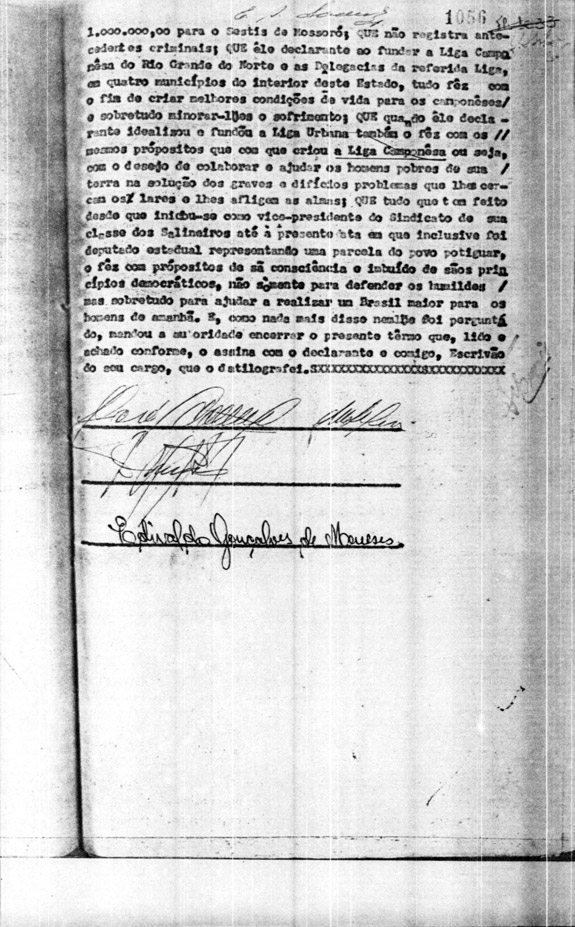 1056
1.000.000,00 para o Sestis de Mossoró; QUE não registra ante-
cedentes criminais; QUE êle declarante ao fundar a Liga Campo
nêsa do Rio Grande do Norte e as Delegacias da referida Liga,
em quatro municípios do interior deste Estado, tudo fêz com
o fim de criar melhores condições de vida para os camponêses/
e sobretudo minorar-lhes o sofrimento; QUE quando êle decla-
rante idealizou e fundôu a Liga Urbana também o fêz com os //
mesmos própositos que com que criou a Liga Camponêsa ou seja,
com o desejo de colaborar e ajudar os homens pobres de sua /
terra na solução dos graves e difícios problemas que lhes cer-
cam os/ lares e lhes afligem as almas; QUE tudo que tem feito
desde que iniciou-se como vice-presidente do Sindicato de sua
classe dos Salineiros até à presente data em que inclusive foi
deputado estadual representando uma parcela do povo potiguar,
o fêz com própositos de sã consciência e imbuído de sãos prin
cípios democráticos, não sòmente para defender os humildes /
mas sobretudo para ajudar a realizar um Brasil maior para os
homens de amanhã. E, como nada mais disse nem lhe foi pergunta
do, mandou a autoridade encerrar o presente têrmo que, lido e
achado conforme, o assina com o declarante e comigo, Escrivão
do seu cargo, que o datilografei.SXXXXXXXXXXXXXXXSXXXXXXXXXXX
Edivaldo Gonçalves de Meneses